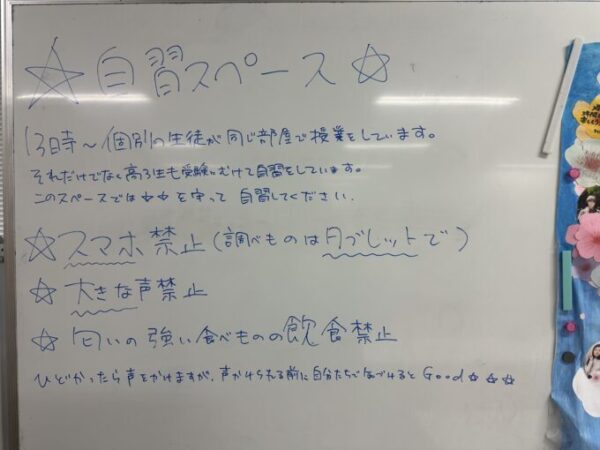 ☆自習スペース☆
13時～個別の生徒が同じ部屋で授業をしています。
それだけでなく高3生も受験にむけて自習をしています。
このスペースでは☆☆を守って自習してください.
☆スマホ禁止(調べものはタブレットで)
☆大きな声禁止
☆匂いの強い食べものの飲食禁止
ひどかったら声をかけますが、声かけられる前に自分たちで気づけるとGood☆☆☆